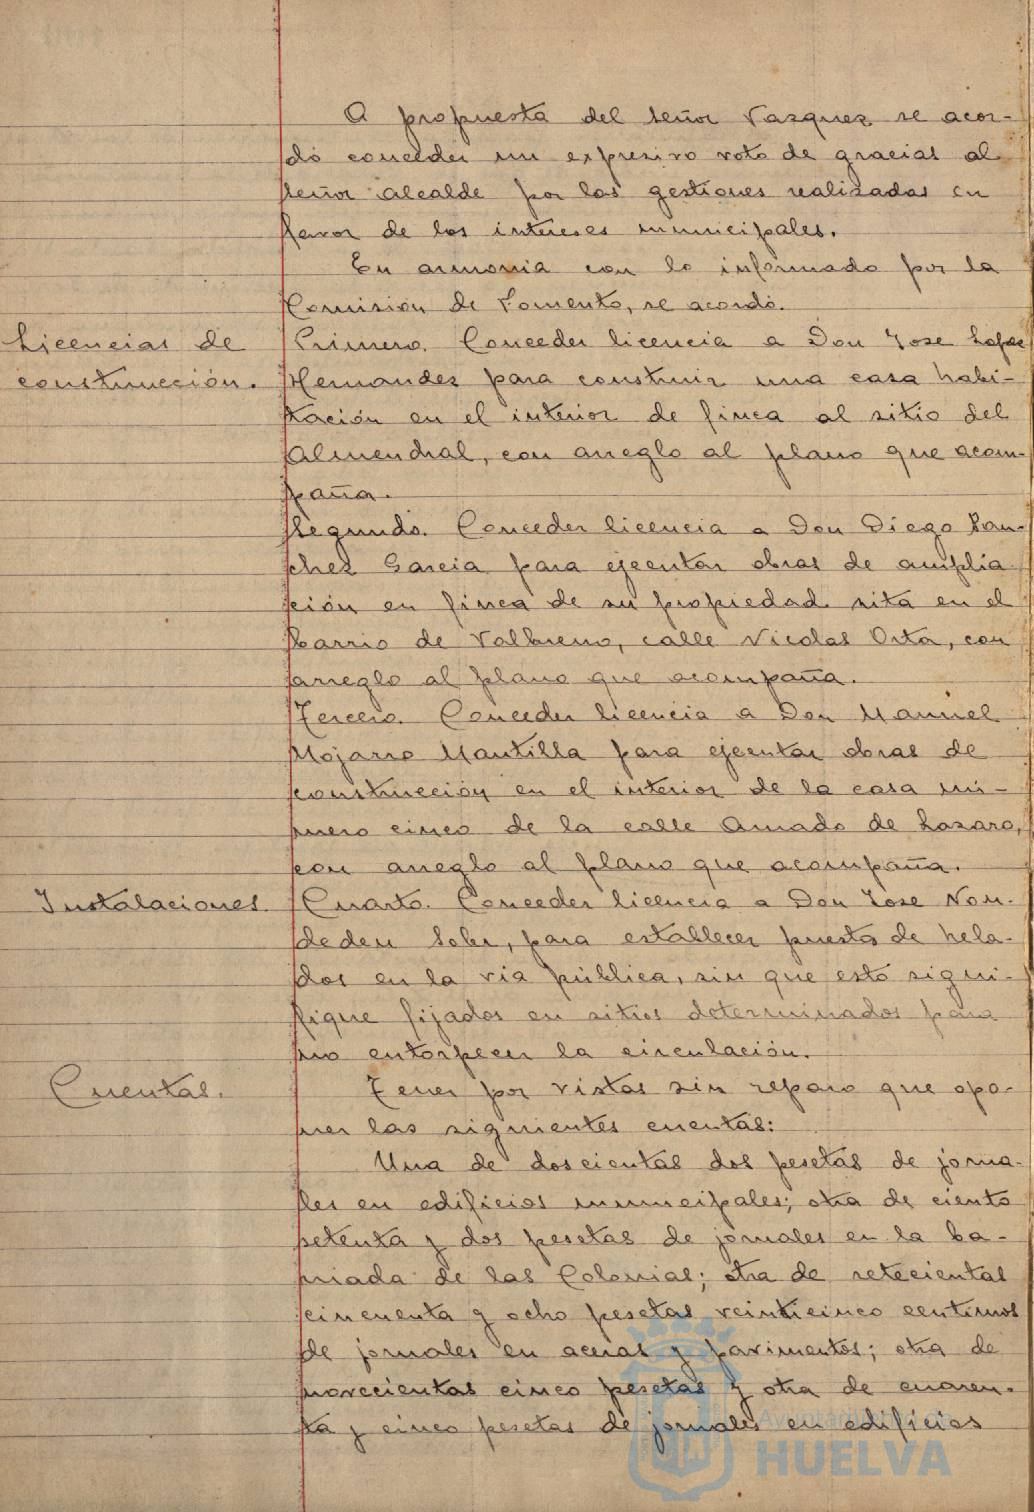 A propuesta del señor Vazquez se acor-
dó conceder un expresivo voto de gracias al
señor alcalde por las gestiones realizadas en
favor de los intereses municipales.
En armonia con lo informado por la
Comision de Fomento, se acordó.
Licencias de
construcción.
Primero. Conceder licencia a Don Jose Lopez
Hernandez para construir una casa habi-
tación en el interior de finca al sitio del
Almendral, con arreglo al plano que acom-
paña.
Segundo. Conceder licencia a Don Diego San-
chez Garcia para ejecutar obras de amplia
ción en finca de su propiedad sita en el
barrio de Valbueno, calle Nicolas Orta, con
arreglo al plano que acompaña.
Tercero. Conceder licencia a Don Manuel
Mojarro Mantilla para ejecutar obras de
construcción en el interior de la casa nú-
mero cinco de la calle Amado de Lazaro,
con arreglo al plano que acompaña.
Instalaciones
Cuarto. Conceder licencia a Don Jose Non-
dedeu Soler, para establecer puesto de hela-
dos en la via pública, sin que esto signi-
fique fijados en sitios determinados para
no entorpecer la circulación.
Cuentas.
Tener por vistas sin reparo que opo-
ner las siguientes cuentas:
Una de doscientas dos pesetas de jorna-
les en edificios municipales; otra de ciento
setenta y dos pesetas de jornales en la ba-
rriada de las Colonias; otra de setecientas
cincuenta y ocho pesetas veinticinco centimos
de jornales en aceras y pavimentos; otra de
novecientas cinco pesetas y otra de cuaren-
ta y cinco pesetas de jornales en edificios
Ayuntamiento de
HUELVA